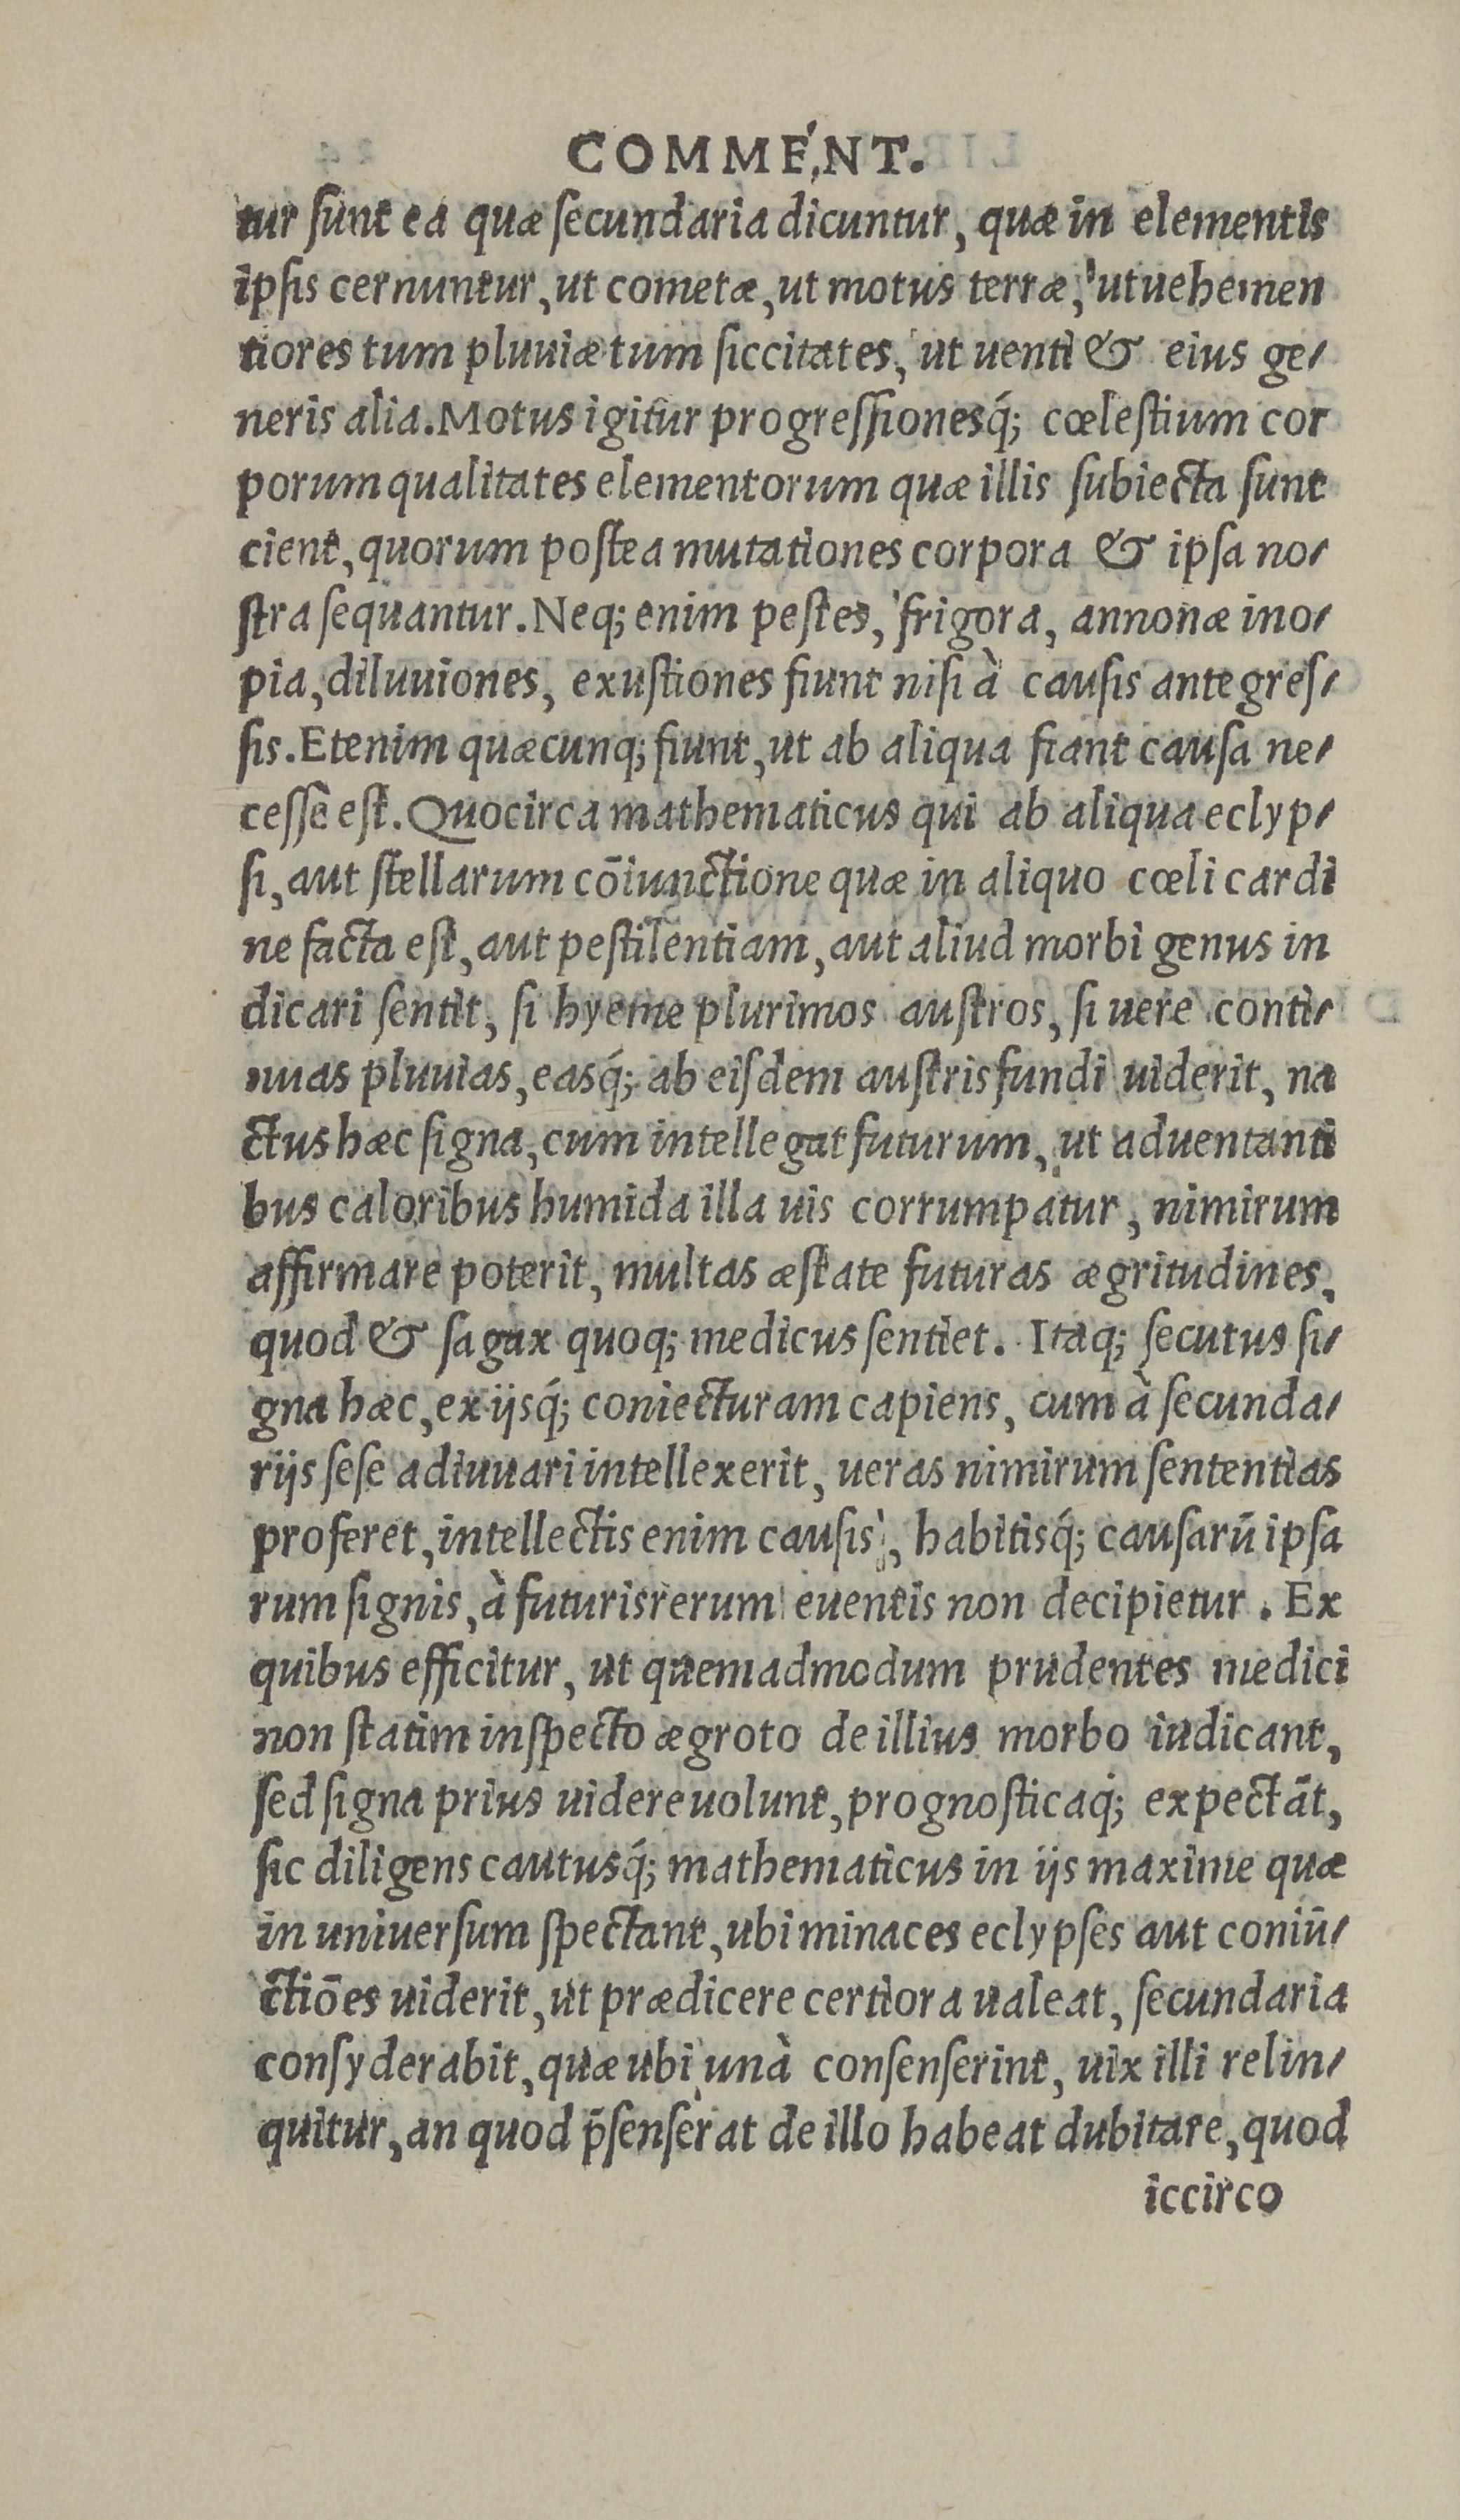 COMMENT.
tur sunt ea quæ secundaria dicuntur, quæ in elementis
ipsis cernuntur, ut cometæ, ut motus terræ, ut uehemen
tiores tum pluuiæ tum siccitates, ut uenti & eius ge-
neris alia. Motus igitur progressionesq́; cœlestium cor
porum qualitates elementorum quæ illis subiecta sunt
cient, quorum postea mutationes corpora & ipsa no-
stra sequantur. Neq; enim pestes, frigora, annonæ ino-
pia, diluuiones, exustiones fiunt nisi à causis antegres-
sis. Etenim quæcunq; fiunt, ut ab aliqua fiant causa ne-
cesse est. Quocirca mathematicus qui ab aliqua eclyp-
si, aut stellarum cōiunctione quæ in aliquo cœli cardi
ne facta est, aut pestilentiam, aut aliud morbi genus in
dicari sentit, si hyeme plurimos austros, si uere conti-
nuas pluuias, easq́; ab eisdem austris fundi uiderit, na
ctus hæc signa, cum intellegat futurum, ut aduentanti
bus caloribus humida illa uis corrumpatur, nimirum
affirmare poterit, multas æstate futuras ægritudines,
quod & sagax quoq; medicus sentiet. Itaq; secutus si-
gna hæc, ex ijsq́; coniecturam capiens, cum à secunda-
rijs sese adiuuari intellexerit, ueras nimirum sententias
proferet, intellectis enim causis, habitisq́; causarū ipsa
rum signis, à futuris rerum euentis non decipietur. Ex
quibus efficitur, ut quemadmodum prudentes medici
non statim inspecto ægroto de illius morbo iudicant,
sed signa prius uidere uolunt, prognosticaq́; expectāt,
sic diligens cautusq́; mathematicus in ijs maxime quæ
in uniuersum spectant, ubi minaces eclypses aut coniū-
ctiōes uiderit, ut prædicere certiora ualeat, secundaria
consyderabit, quæ ubi unà consenserint, uix illi relin-
quitur, an quod p̄senserat de illo habeat dubitare, quod
iccirco